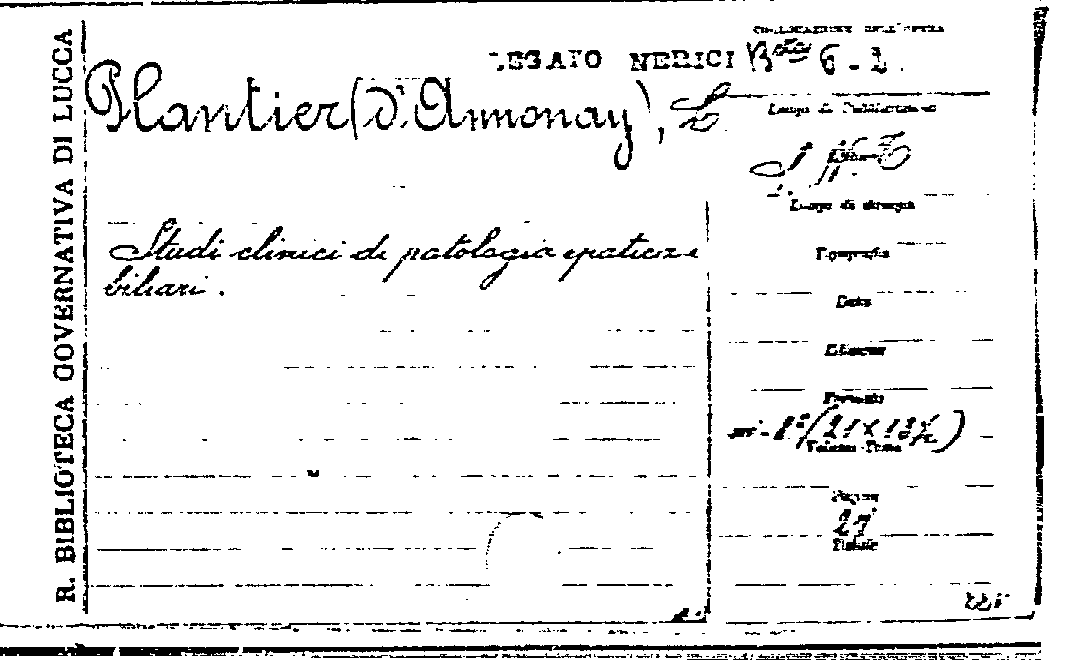 R. BIBLIOTECA GOVERNATIVA DI LUCCA
COLLOCAZIONE DELL'OPERA
LEGATO NERICI B.ta 6-2.
Plantier (d'Annonay), L
Luogo di Pubblicazione
Luogo di stampa
Studi clinici di patologia epatica e
biliari.
Tipografia
Data
Edizione
Formato
in-8° (21 x 13½)
Volume-Tomo
Pagine
27